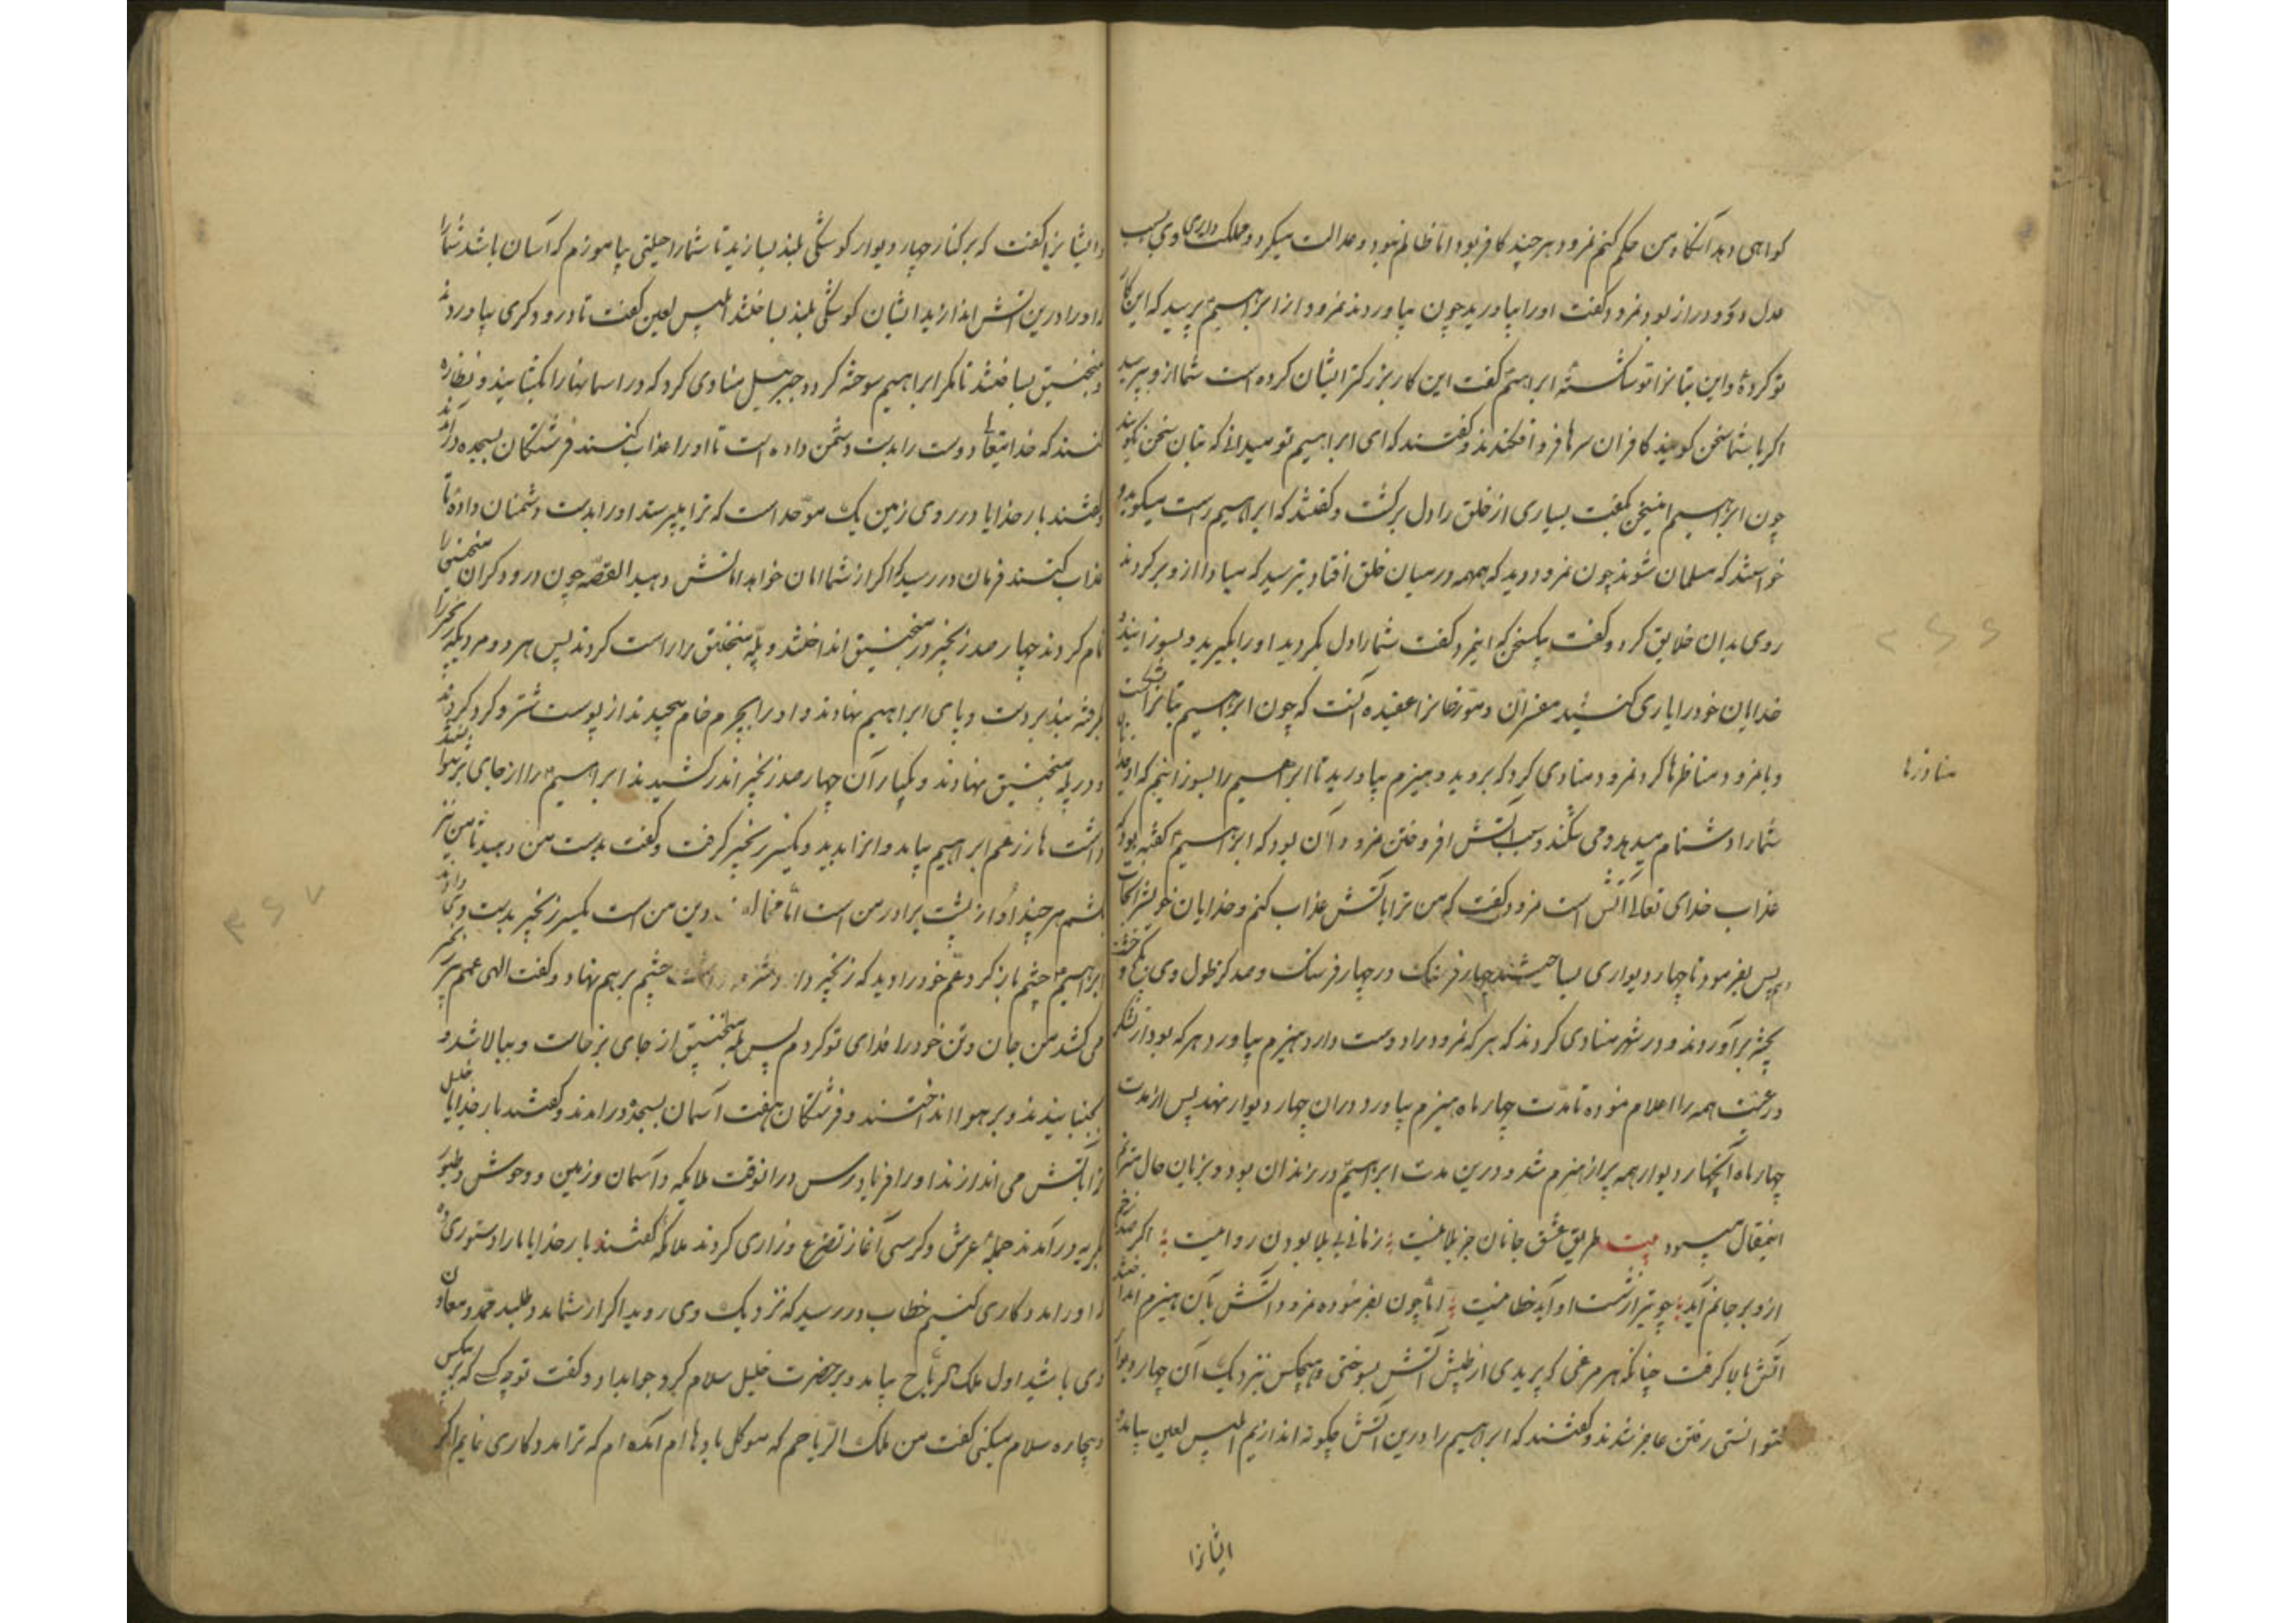 کواهی دهد آنگاه من حکم کنم نمرود هرچند کافر بود اما ظالم نبود و عدالت میکرد و مملکت داری وی بسبب
عدل و دراز بود نمرود گفت او را بیاورید چون بیاوردند نمرود از ابراهیم پرسید که این کار
تو کردهٔ و این بتانرا تو شکستهٔ ابراهیم گفت این کار بزرکتر ایشان کرده است شما ازو بپرسید
اکر با شما سخن کویند کافران سرها فرو افکندند و گفتند که ای ابراهیم تو میدانی که بتان سخن نکویند
چون ابراهیم این سخن بگفت بسیاری از خلق را دل برگشت و گفتند که ابراهیم راست میکوید و
خواستند که مسلمان شوند چون نمرود دید که همهمه در میان خلق افتاد بترسید که مبادا ازو برکردند
روی بدان خلایق کرد و گفت بیک سخن که اینمرد گفت شما را دل بگردید او را بگیرید و بسوزانید و
خدایان خود را یاری کنید مفسران و مورخانرا عقیده آنست که چون ابراهیم بتانرا بشکست
و با نمرود مناظرها کرد نمرود منادی کرد که بروید و هیزم بیاورید تا ابراهیم را بسوزانیم که او خدایان
شما را دشنام میدهد و می شکند و سبب آتش افروختن نمرود آن بود که ابراهیم گفته بود که
عذاب خدای تعالی آتش است نمرود گفت که من ترا بآتش عذاب کنم و خدایان خویشرا نجات
دهم پس بفرمود تا چهار دیواری بساختند چهار فرسنک در چهار فرسنک و صد کز طول وی بسنک و خشت
پخته برآوردند و در شهر منادی کردند که هر که نمرود را دوست دارد هیزم بیاورد هر که بود از لشکر و
رعیت همه را اعلام نموده تا مدت چهار ماه هیزم بیاورد و در آن چهار دیوار نهند پس از مدت
چهار ماه آنچهار دیوار همه پر از هیزم شد و درین مدت ابراهیم در زندان بود و بزبان حال مترنم
اینمقال میبود بیت طریق عشق جانان جز بلا نیست زمانی بی بلا بودن روا نیست اکر صد زخم
ازو بر جانم آید چو تیر از شست او آید خطا نیست اما چون بفرموده نمرود آتش بآن هیزم انداختند
آتش بالا کرفت چنانکه هر مرغی که پریدی از طپش آتش بسوختی و هیچکس بنزدیک آن چهار دیوار
نتوانستی رفتن عاجز شدند و گفتند که ابراهیم را درین آتش چگونه اندازیم ابلیس لعین بیامد و
ایشانرا
مناظرها
و ایشانرا گفت که بر کنار چهار دیوار کوشکی بلند بسازید تا شما را حیلتی بیاموزم که آسان باشد شما را
که او را درین آتش اندازید ایشان کوشکی بلند بساختند ابلیس لعین گفت تا درودکری بیاوردند
و منجنیق بساختند تا مکر ابراهیم سوخته کردد جبرئیل منادی کرد که در آسمانها را بکشایند و نظاره
کنند که خدایتعالی دوست را بدست دشمن داده است تا او را عذاب کنند فرشتکان بسجده درآمدند
و گفتند بار خدایا در روی زمین یک موحد است که ترا میپرستد او را بدست دشمنان دادهٔ تا
عذاب کنند فرمان در رسید که اکر از شما امان خواهد امانش دهید القصه چون درودکران منجنیق را
تمام کردند چهار صد زنجیر در منجنیق انداختند و پلهٔ منجنیق را راست کردند پس هر دو مرد یکه زنجیر را
کرفته بند بر دست و پای ابراهیم نهادند و او را بچرم خام پیچیدند از پوست شتر و کرد کردند
و در پله منجنیق نهادند و یکبار آن چهار صد زنجیر اندر کشیدند ابراهیم را از جای بر نتوانستند
داشت هارز عم ابراهیم بیامد و آنرا بدید و یکسر زنجیر گرفت و گفت بدست من دهید تا من نیز
بکشم هرچند او از پشت برادر من است اما مخالف دین من است یکسر زنجیر بدست وی دادند
ابراهیم چشم باز کرد عم خود را دید که زنجیر چشم برهم نهاد و گفت الهی عمم زنجیر
می کشد من جان و تن خود را فدای تو کردم پس پله منجنیق از جای برخاست و ببالا شد و
بجنبانیدند و بر هوا انداختند و فرشتکان هفت آسمان بسجده درآمدند و گفتند بار خدایا خلیل
ترا بآتش می اندازند او را فریاد رس در آنوقت ملایکه و آسمان و زمین و وحوش و طیور
بگریه درآمدند جمله عرش و کرسی آغاز تضرع و زاری کردند ملائکه گفتند بار خدایا ما را دستوری ده
تا او را مددکاری کنیم خطاب در رسید که نزدیک وی روید اکر از شما مدد طلبد ممد و معاون
وی باشید اول ملک الریاح بیامد و بر حضرت خلیل سلام کرد جواب داد و گفت تو چه کسی که بر بیکس
و بیچاره سلام میکنی گفت من ملک الریاحم که موکل بادها ام آمده ام که ترا مددکاری نمایم اکر